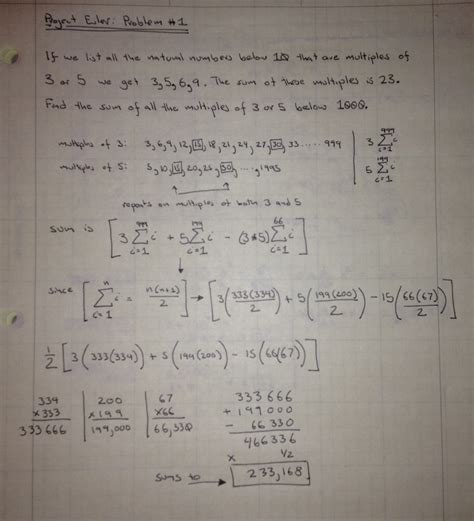 Project Euler: Problem #1
If we list all the natural numbers below 10 that are multiples of
3 or 5 we get 3,5,6,9. The sum of these multiples is 23.
Find the sum of all the multiples of 3 or 5 below 1000.
multiples of 3: 3,6,9,12,15,18,21,24,27,30,33.....999 | 3 Σ(i=1 to 999) i
multiples of 5: 5,10,15,20,25,30,....,995 | 5 Σ(i=1) i
repeats on multiples of both 3 and 5
sum is [3 Σ(i=1 to 999) i + 5 Σ(i=1 to 199) i - (3*5) Σ(i=1 to 66) i]
since [Σ(i=1 to n) i = n(n+1)/2] → [3(333(334)/2) + 5(199(200)/2) - 15(66(67)/2)]
1/2 [3(333(334)) + 5(199(200)) - 15(66(67))]
334 | 200 | 67 333 666
x333 | x199 | x66 + 199 000
333 666 | 199,000 | 66,330 - 66 330
466336
x 1/2
sums to → 233,168